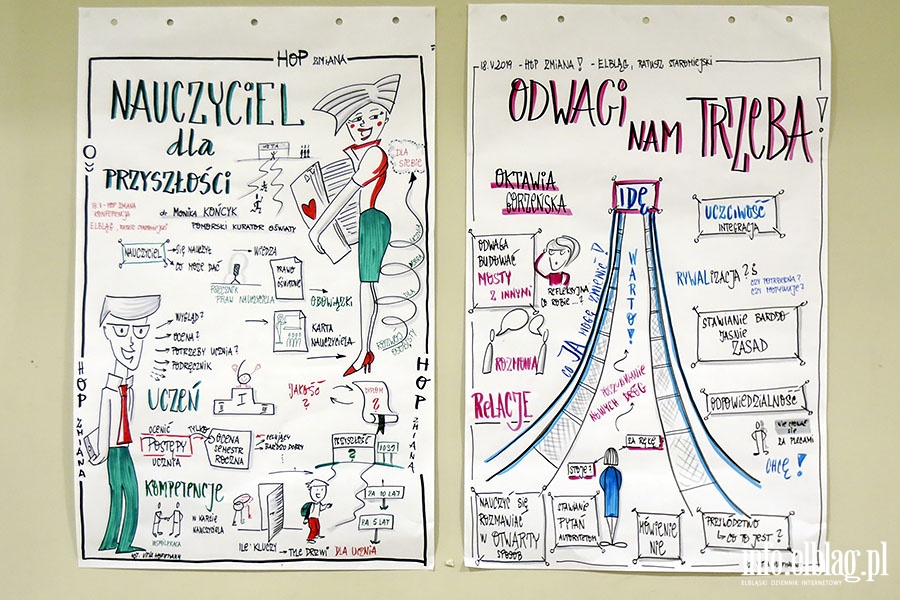 HOP ZMIANA
NAUCZYCIEL
dla
PRZYSZŁOŚCI
META
DLA
SIEBIE
18.V - HOP ZMIANA
KONFERENCJA
ELBLĄG, RATUSZ STAROMIEJSKI
dr MONIKA KOŃCYK
POMORSKI KURATOR OŚWIATY
NAUCZYCIEL
SIĘ NAUCZYŁ
WIEDZA
CO MOŻE DAĆ
RZECZNIK
PRAW NAUCZYCIELA
PRAWO
OŚWIATOWE
OBOWIĄZKI
KARTA
NAUCZYCIELA
WYGLĄD?
OCENA?
POTRZEBY UCZNIA?
PODRĘCZNIK
UCZEŃ
JAKOŚĆ
?
DYPLOM
?
OCENIĆ TYLKO
POSTĘPY
UCZNIA
OCENA
SEMESTR
ROCZNA
CELUJĄCY
BARDZO DOBRY
PRZYSZŁOŚĆ
?
2037
ZA 10 LAT
ZA 5 LAT
KOMPETENCJE
WSPÓŁPRACA
W KARCIE
NAUCZYCIELA
ILE KLUCZY
TYLE DRZWI DLA UCZNIA
HOP ZMIANA
HOP ZMIANA
18.V.2019 - HOP ZMIANA! - ELBLĄG, RATUSZ STAROMIEJSKI
ODWAGI
NAM TRZEBA!
OKTAWIA
GORZEŃSKA
IDĘ
UCZCIWOŚĆ
INTEGRACJA
ODWAGA
BUDOWAĆ
MOSTY
Z INNYMI
REFLEKSYJNA
CO ROBIĘ...?
CO JA MOGĘ ZMIENIĆ!
WARTO!
RYWALIZACJA?
CZY POTRZEBNA?
CZY MOTYWUJE?
STAWIANIE BARDZO
JASNYCH
ZASAD
ROZMOWA
RELACJE
POSZUKIWANIE
NOWYCH DRÓG
ODPOWIEDZIALNOŚĆ
NIE CHOWAĆ
SIĘ
ZA PLECAMI
ZA RĘKĘ?
STOJĘ?
CHCĘ!
NAUCZYĆ SIĘ
ROZMAWIAĆ
W OTWARTY
SPOSÓB
STAWIANIE
PYTAŃ
AUTORYTETOM
MÓWIENIE
NIE
PRZYWÓDZTWO
CO TO JEST?
info.elblag.pl
ELBLĄSKI DZIENNIK INTERNETOWY